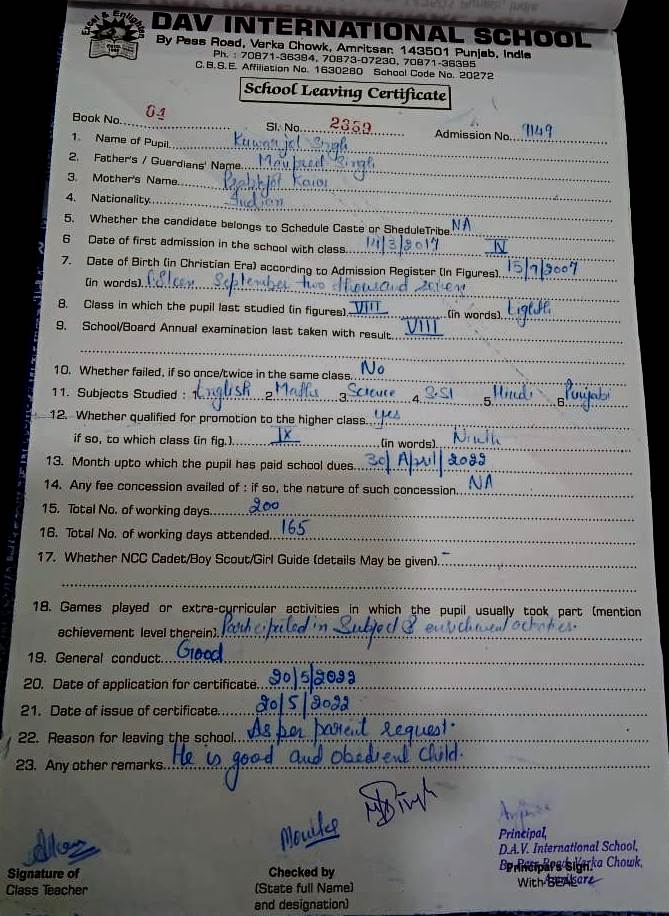 Excel & Enlighten
DAV INTERNATIONAL SCHOOL
By Pass Road, Verka Chowk, Amritsar, 143501 Punjab, India
Ph. : 70871-36394, 70873-07230, 70871-36395
C.B.S.E. Affiliation No. 1630280 School Code No. 20272
School Leaving Certificate
Book No. 61 Sl. No. 2359 Admission No. 9149
1. Name of Pupil Singh
2. Father's / Guardians' Name Singh
3. Mother's Name Prabhjot Kaur
4. Nationality Indian
5. Whether the candidate belongs to Schedule Caste or SheduleTribe NA
6 Date of first admission in the school with class /3/2017 IV
7. Date of Birth (in Christian Era) according to Admission Register (in Figures) 15/ /2007
(in words) September two thousand seven
8. Class in which the pupil last studied (in figures) VIII (in words) Eighth
9. School/Board Annual examination last taken with result VIII
10. Whether failed, if so once/twice in the same class No
11. Subjects Studied : 1 English 2 Maths 3 Science 4 S.St 5. Hindi 6. Punjabi
12. Whether qualified for promotion to the higher class yes
if so, to which class (in fig.) IX (in words) Ninth
13. Month upto which the pupil has paid school dues 30/April/2022
14. Any fee concession availed of : if so, the nature of such concession NA
15. Total No. of working days 200
16. Total No. of working days attended 165
17. Whether NCC Cadet/Boy Scout/Girl Guide (details May be given) -
18. Games played or extra-curricular activities in which the pupil usually took part (mention
achievement level therein) Participated in Subject & enrichment activities.
19. General conduct Good
20. Date of application for certificate 20/5/2022
21. Date of issue of certificate 20/5/2022
22. Reason for leaving the school As per parent request.
23. Any other remarks He is good and obedient child.
Principal,
D.A.V. International School,
By Pass Road, Verka Chowk,
Amritsar
Signature of
Class Teacher
Checked by
(State full Name)
and designation)
Principal's Sign.
With SEAL